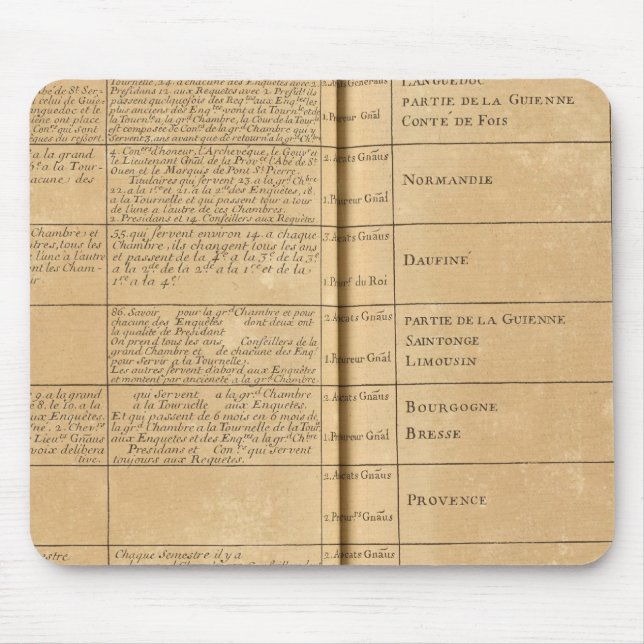 Tournelle, 24. a chacune des Enquêtes avec 2.
Presidans 12. aux Requêtes avec 2. Presid.ts ils
passent quelquefois des Req.tes aux Enq.tes les
plus anciens des Enq.tes vont a la Tourn.le et de
la Tourn.le a la gr.de Chambre, la Cour de la Tour.le
est composée de Con.rs de la gr.de Chambre qui y
Servent 3. ans avant que de retourn.r a la gr.de Ch.bre
Abé de S.t Ser-
celui de Guie-
nguedoc et le
enne ont place
Con.rs qui sont
ques du ressort.
2. Avocats Generaus
1. Procureur Gnâl
LANGUEDOC
PARTIE DE LA GUIENNE
CONTÉ DE FOIS
a la grand
a la Tour-
acune; des
4. Con.ers d'honeur, l'Archevêque, le Gouv.r ou
le Lieutenant Gnâl de la Prov.ce l'Abé de S.t
Ouen et le Marquis de Pont S.t Pierre.
Titulaires qui servent 23. a la gr.de Ch.bre
22. a la 1.re et 21. a la 2.de des Enquêtes, 18.
a la Tournelle et qui passent tour a tour
de l'une a l'autre de ces Chambres.
2. Presidans et 14. Conseillers aux Requêtes
2. Avocats Gnâus
1. Procureur Gnâl
NORMANDIE
Chambre; et
tres, tous les
l'une a l'autre
ent les Cham-
r.
35. qui servent environ 14. a chaque
Chambre, ils changent tous les ans
et passent de la 4.e a la 3.e de la 3.e
a la 2.de de la 2.de a la 1.re et de la
1.re a la 4.e
3. Avocats Gnâus
1. Procur.r du Roi
DAUFINÉ
86. Savoir pour la gr.de Chambre et pour
chacune des Enquêtes dont deux ont
la qualité de Presidant
On prend tous les ans Conseillers de la
grand Chambre et de chacune des Enq.
pour Servir a la Tournelle.
Les autres servent d'abord aux Enquêtes
et montent par ancieneté a la gr.de Chambre
2. Avocats Gnâus
1. Procureur Gnâl
PARTIE DE LA GUIENNE
SAINTONGE
LIMOUSIN
9. a la grand
8. le 10. a la
aux Enquêtes.
Nne. 2. Chev.rs
Lieu.ts Gnâus
voix delibera
tive.
qui Servent a la gr.de Chambre
a la Tournelle aux Enquêtes.
Et qui passent de 6 mois en 6 mois de
la gr.de Chambre a la Tournelle de la Tour
aux Enquêtes et des Enq.tes a la gr.de Ch.bre
Presidans et Con.rs qui Servent
toujours aux Requêtes.
2. Avocats Gnâus
1. Procureur Gnâl
BOURGOGNE
BRESSE
2. Avocats Gnâus
2. Procur.rs Gnâus
PROVENCE
estre
Chaque Semestre il y a
2. Avocats Gnâus